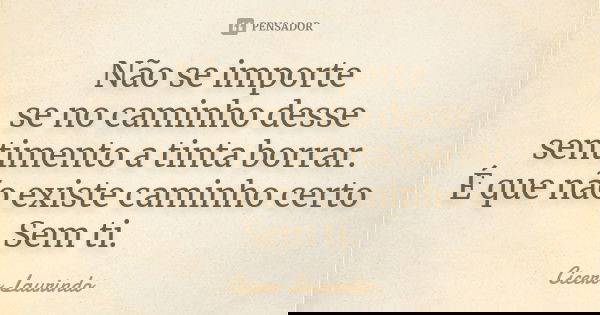 PENSADOR
Não se importe
se no caminho desse
sentimento a tinta borrar.
É que não existe caminho certo
Sem ti.
Cicero Laurindo